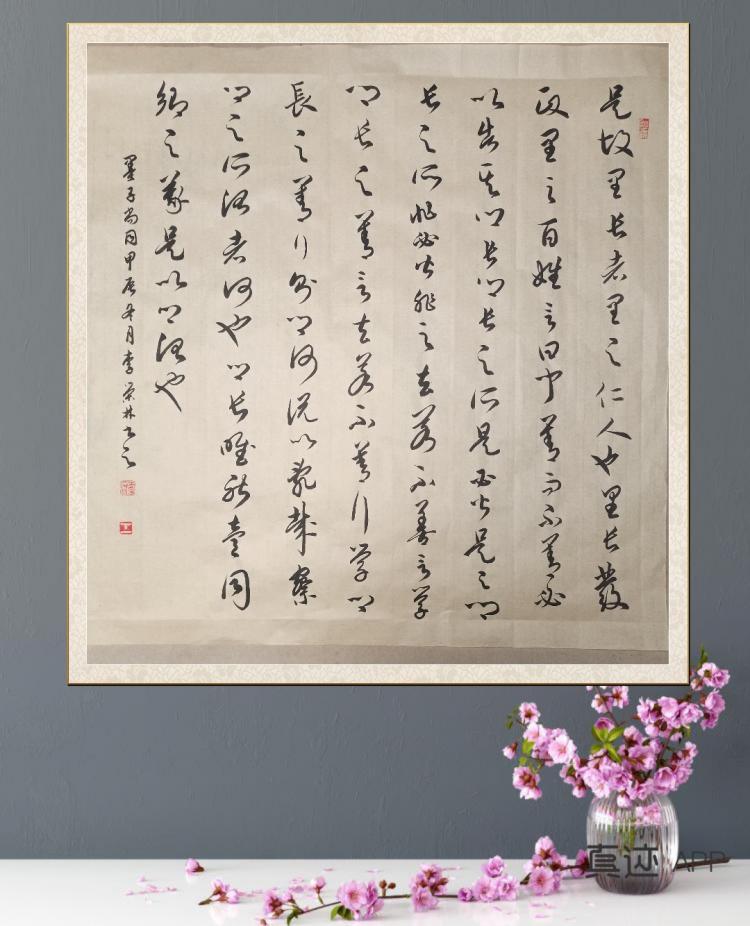 是故里長者里之仁人也里長發
政里之百姓言曰聞善而不善必
以告其鄉長鄉長之所是必皆是之鄉
長之所非必皆非之去若不善言學
鄉長之善言去若不善行學鄉
長之善行則鄉何說以亂哉察
鄉之所治者何也鄉長唯能壹同
鄉之義是以鄉治也
墨子尚同甲辰冬月李荣林书之
真迹 APP